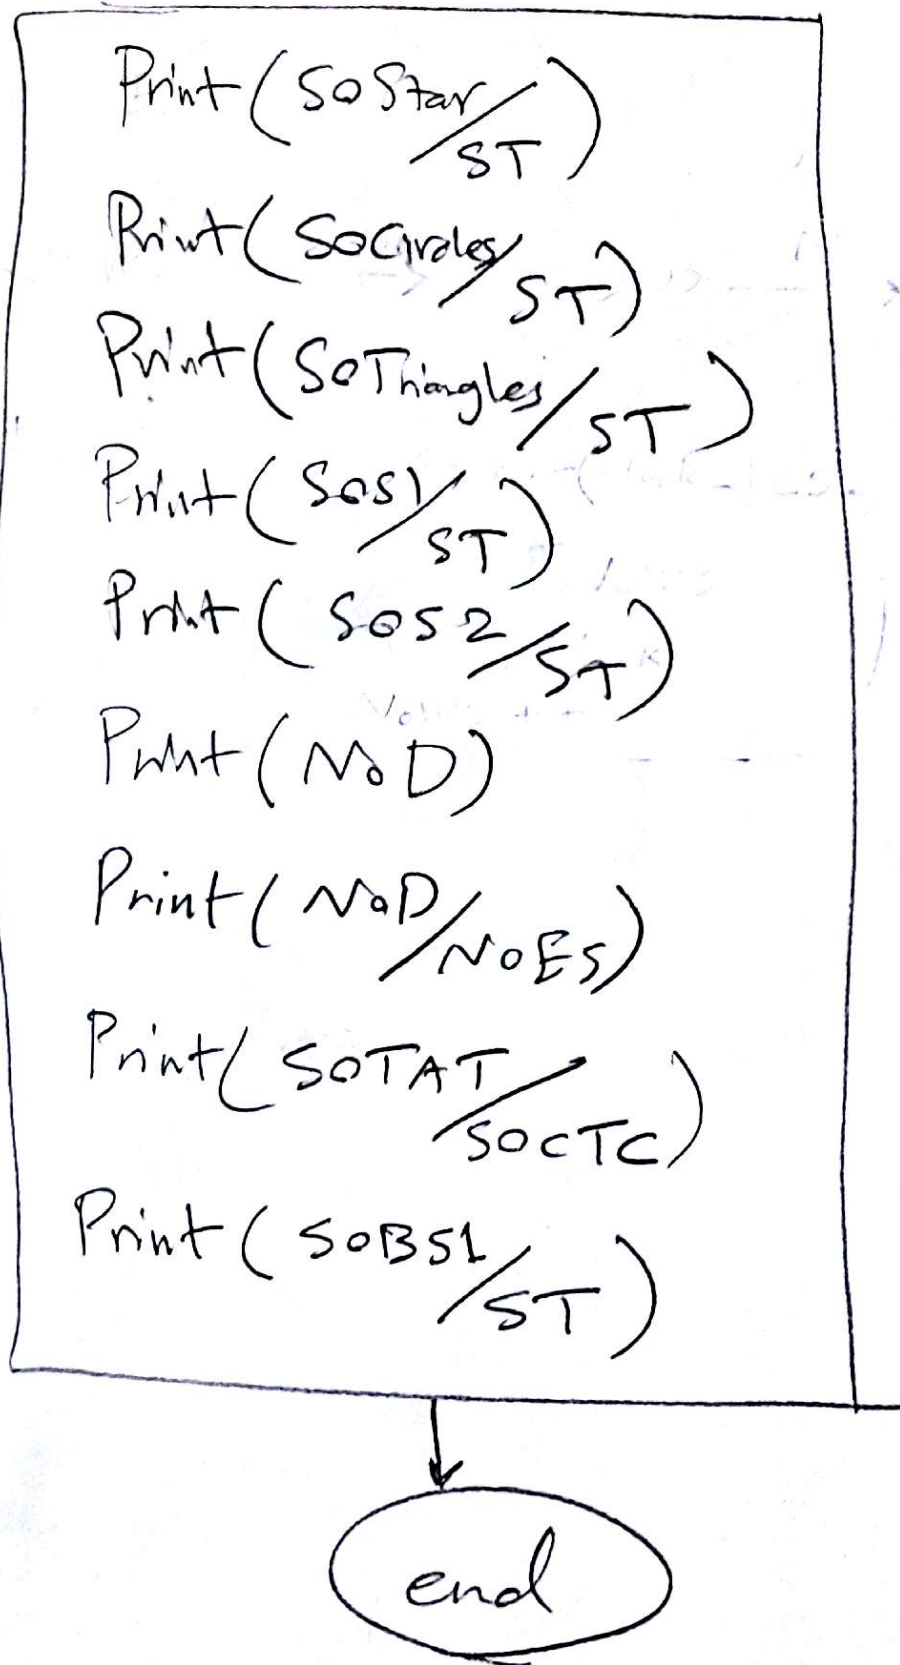 Print(SoStar/ST)
Print(SoCircles/ST)
Print(SoTriangles/ST)
Print(SoS1/ST)
Print(SoS2/ST)
Print(NoD)
Print(NoD/NoES)
Print(SOTAT/SOCTC)
Print(SoBS1/ST)
end